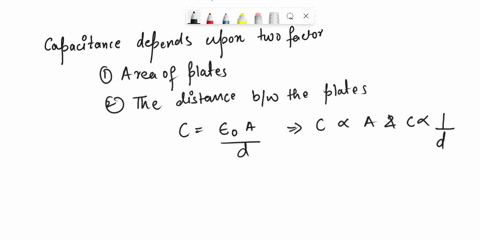 Capacitance depends upon two factor
① Area of plates
② The distance b/w the plates
C = ε₀ A / d ⇒ C ∝ A & C ∝ 1/d